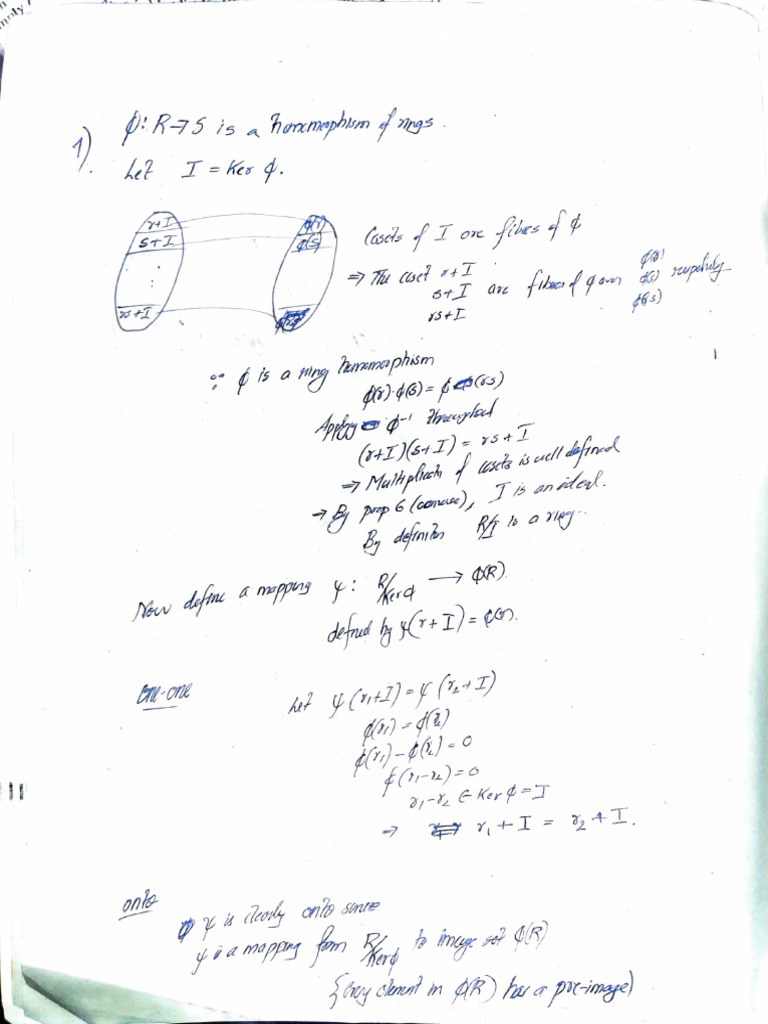 1) φ: R → S is a homomorphism of rings.
Let I = Ker φ.
r+I φ(r)
s+I φ(s)
rs+I
Cosets of I are fibres of φ
⇒ The coset r+I φ(r)
s+I are fibres of φ over φ(s) respectively
rs+I φ(rs)
∵ φ is a ring homomorphism
φ(r)·φ(s) = φ(rs)
Applying φ⁻¹ throughout
(r+I)(s+I) = rs+I
⇒ Multiplication of cosets is well defined
→ By prop 6 (converse), I is an ideal.
By definition R/I is a ring.
Now define a mapping ψ: R/Ker φ → φ(R).
defined by ψ(r+I) = φ(r).
One-one
Let ψ(r₁+I) = ψ(r₂+I)
φ(r₁) = φ(r₂)
φ(r₁) - φ(r₂) = 0
φ(r₁-r₂) = 0
r₁-r₂ ∈ Ker φ = I
⇒ r₁+I = r₂+I.
onto
ψ is clearly onto since
ψ is a mapping from R/Ker φ to image set φ(R)
{every element in φ(R) has a pre-image)